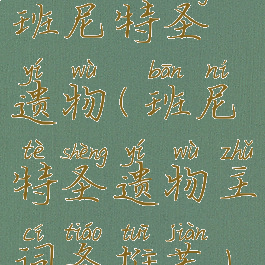 班尼特圣
yí wù bān ní
遗物(班尼
tè shèng yí wù zhǔ
特圣遗物主
cí tiáo tuī jiàn
词条推荐)